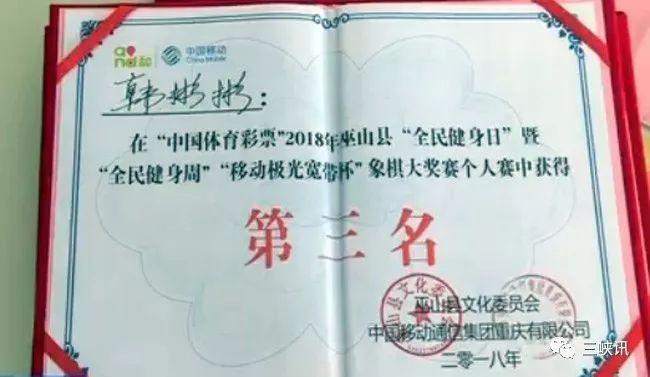 and 和 中国移动
China Mobile
韩彬彬：
在“中国体育彩票”2018年巫山县“全民健身日”暨
“全民健身周”“移动极光宽带杯”象棋大奖赛个人赛中获得
第三名
巫山县文化委员会
中国移动通信集团重庆有限公司
二零一八年
三峡讯